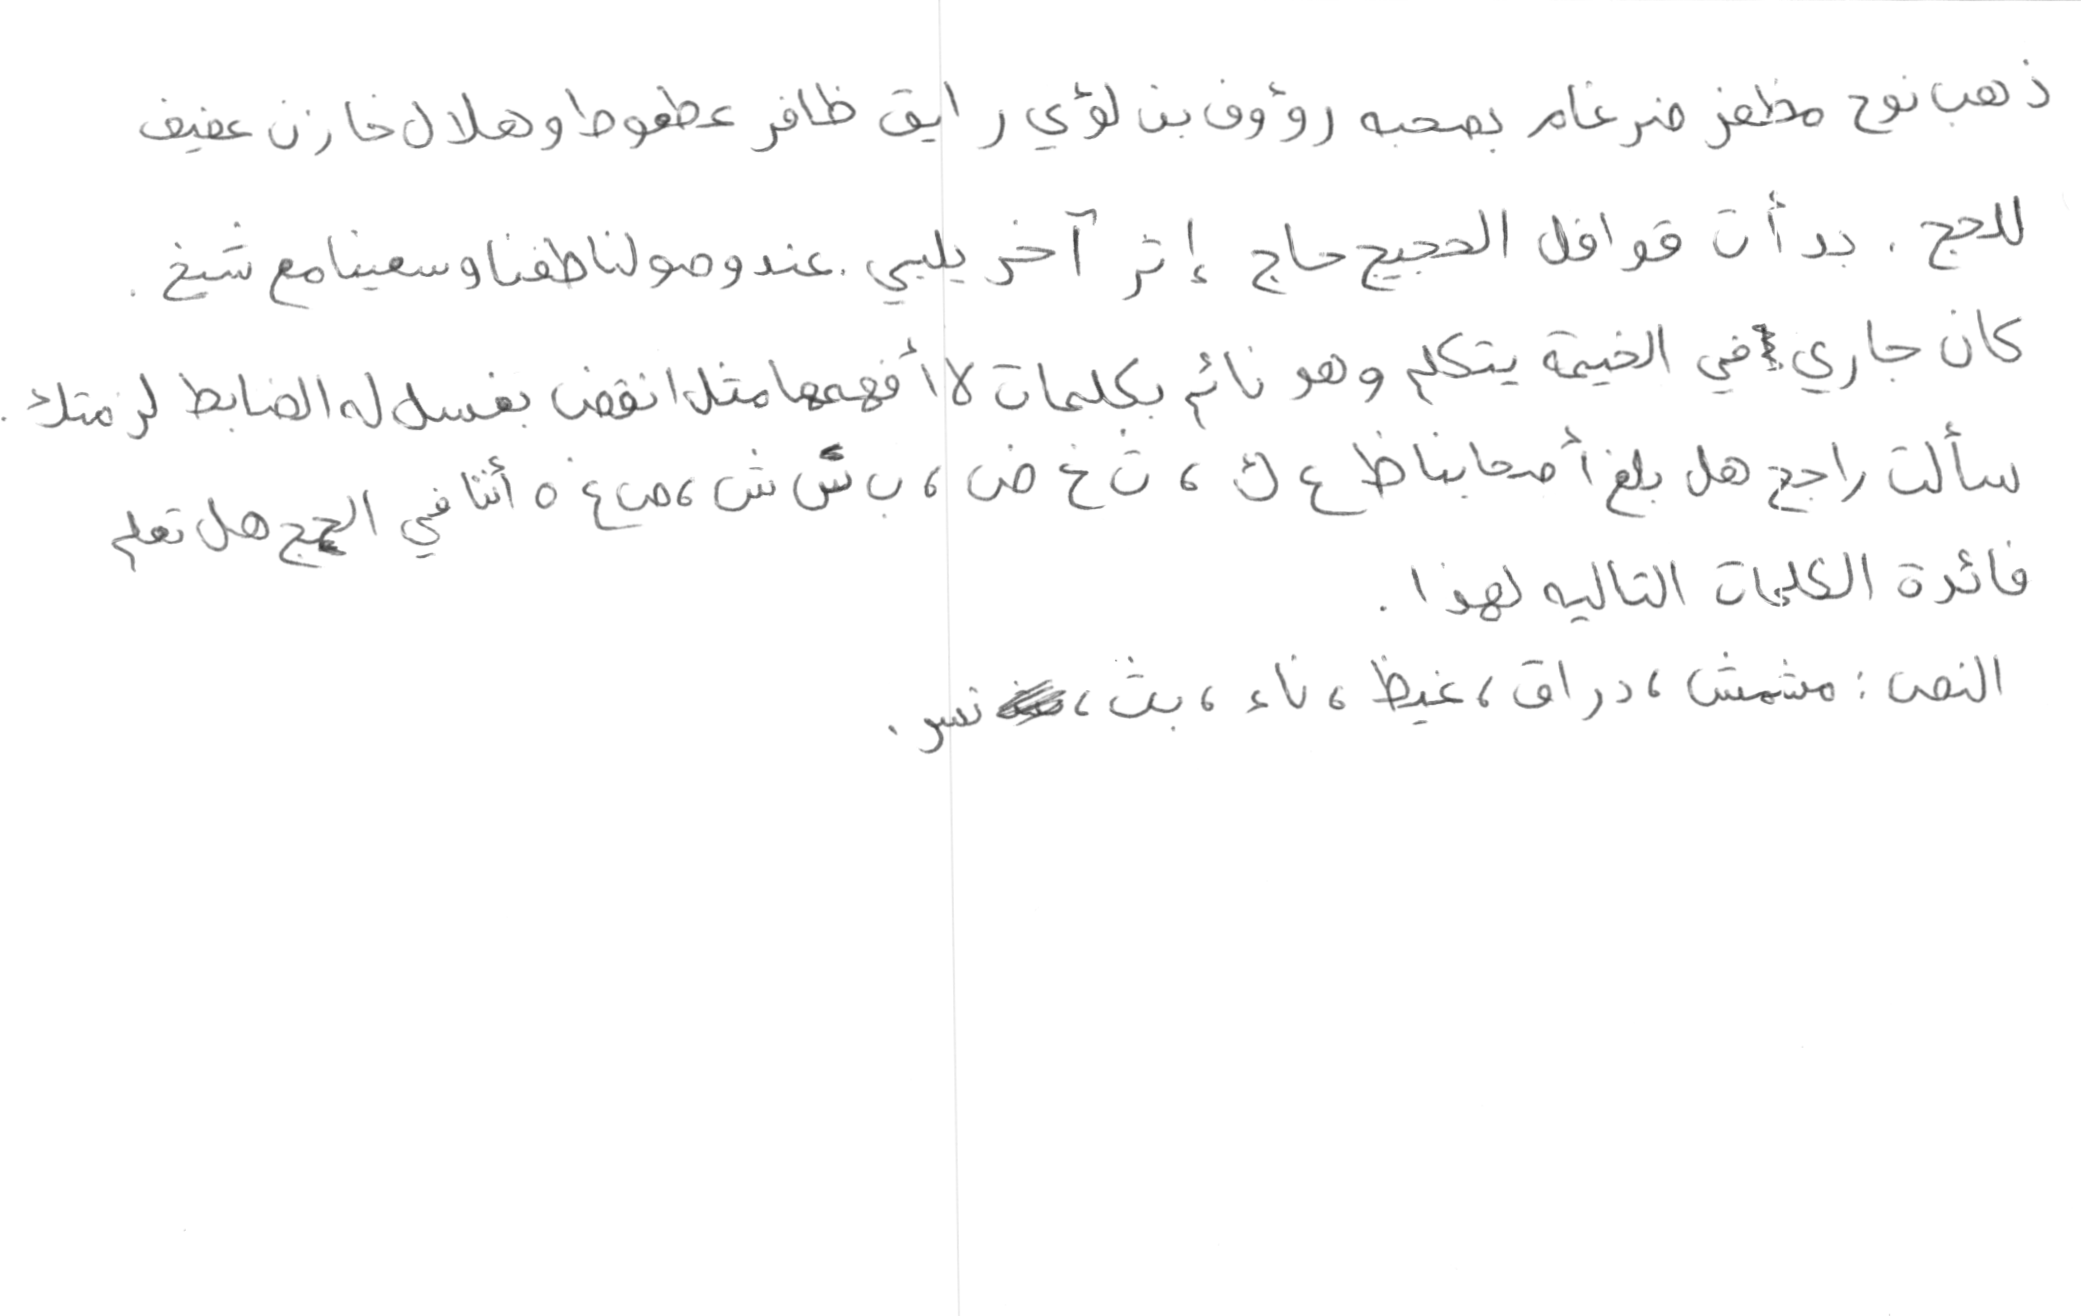 ذهب نوح مظفر ضرغام بصحبه رؤوف بن لؤي رايق ظافر عطعوط وهلال خازن عفيف
للحج . بدأت قوافل الحجيج حاج إثر آخر يلبي . عند وصولنا طفنا وسعينا مع شيخ .
كان جاري في الخيمة يتكلم وهو نائم بكلمات لا أفهمها مثل انقض بغسل له الضابط لزمتك .
سألت راجح هل بلغ أصحابنا ظ ع ك ، ث خ ض ، ب س ش ، ص غ ه أننا في الحج هل تعلم
فائدة الكلمات التاليه لهذا .
النص : مشمش ، دراق ، غيظ ، ناء ، بث ، نسر .